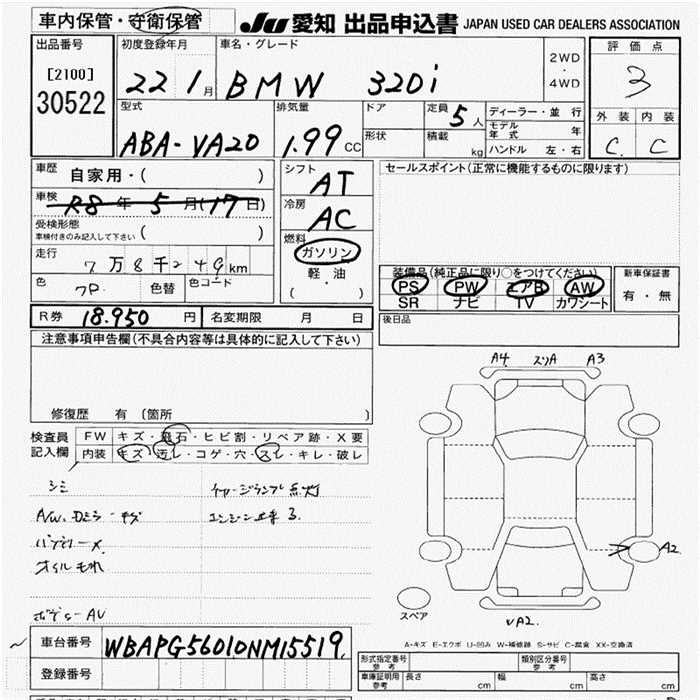 車内保管・守衛保管
JU 愛知 出品申込書 JAPAN USED CAR DEALERS ASSOCIATION
出品番号
[2100]
30522
初度登録年月
22 1月
車名・グレード
BMW 320i
2WD
・
4WD
評価点
3
外装 内装
C C
型式
ABA-VA20
排気量
1.99 CC
ドア
形状
定員 5人
積載 kg
ディーラー・並行
モデル年式 年
ハンドル 左・右
車歴 自家用・( )
車検 R8年5月(17日)
受検形態
車検付きのみ記入して下さい ( )
走行
7万8千249km
色
色替
色コード
シフト
AT
冷房
AC
燃料
ガソリン
軽・油
( )
セールスポイント(正常に機能するものに限ります)
装備品(純正品に限り○をつけてください)
PS PW エアB AW
SR ナビ TV カワシート
新車保証書
有・無
R券 18.950円 名変期限 月 日
後日品
注意事項申告欄(不具合内容等は具体的に記入して下さい)
修復歴 有 〔箇所 〕
検査員記入欄
FW キズ・飛石・ヒビ割・リペア跡・X要
内装 キズ・汚レ・コゲ・穴・スレ・キレ・破レ
シミ
チャージランプ点灯
A/W, Dミラーキズ
オイルもれ
A4 スリA A3
A2
A2
スペア
A-キズ E-エクボ U-凹み W-補修跡 S-サビ C-腐食 XX-交換済
車台番号 WBAPG56010NM15519
登録番号
形式指定番号
参考
類別区分番号
参考
車庫証明用
参考
長さ cm
幅 cm
高さ cm